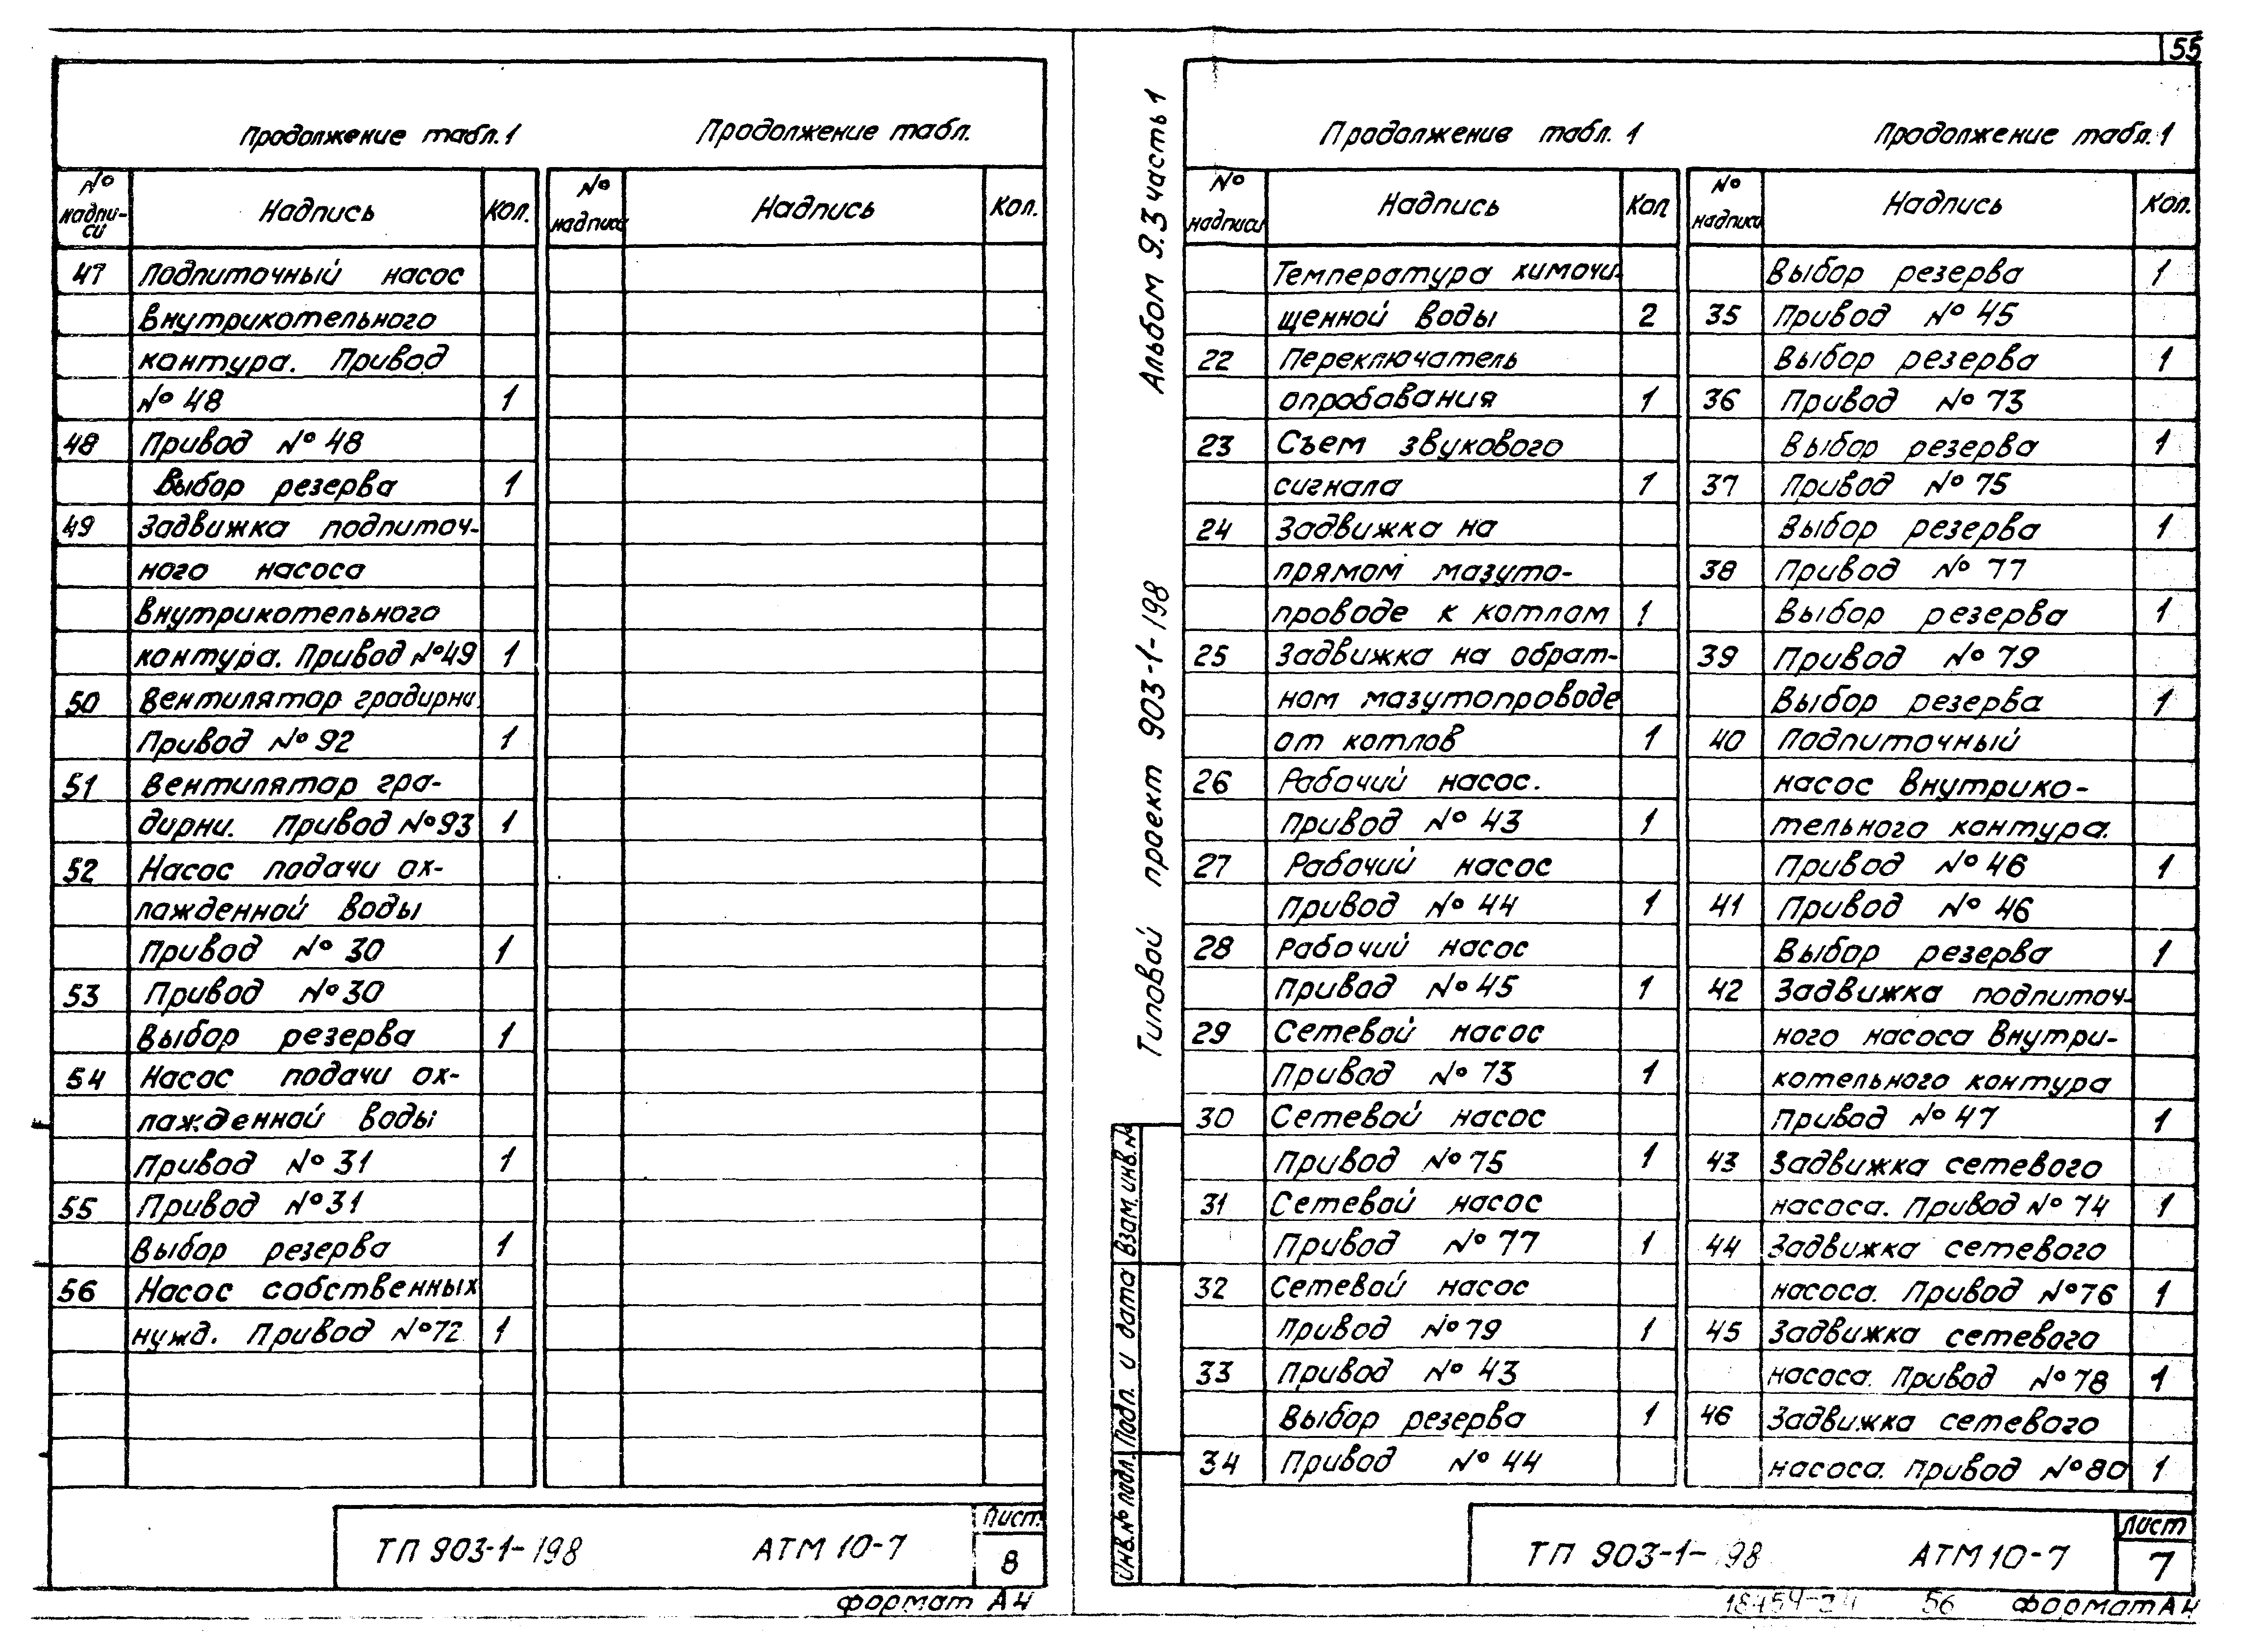 55
Продолжение табл. 1
Продолжение табл.
№ надпи-си Надпись Кол.
№ надписи Надпись Кол.
47 Подпиточный насос
внутрикотельного
контура. Привод
№ 48 1
48 Привод № 48
Выбор резерва 1
49 Задвижка подпиточ-
ного насоса
внутрикотельного
контура. Привод №49 1
50 Вентилятор градирни.
Привод № 92 1
51 Вентилятор гра-
дирни. Привод №93 1
52 Насос подачи ох-
лажденной воды
Привод № 30 1
53 Привод №30
Выбор резерва 1
54 Насос подачи ох-
лажденной воды
Привод № 31 1
55 Привод №31
Выбор резерва 1
56 Насос собственных
нужд. Привод №72 1
ТП 903-1-198 АТМ 10-7
Лист
8
формат А4
Альбом 9.3 часть 1
Типовой проект 903-1-198
Взам. инв.№
Подп. и дата
Инв.№ подл.
Продолжение табл. 1
Продолжение табл. 1
№ надписи Надпись Кол
№ надписи Надпись Кол.
Температура химочи-
щенной воды 2
22 Переключатель
опробования 1
23 Съем звукового
сигнала 1
24 Задвижка на
прямом мазуто-
проводе к котлам 1
25 Задвижка на обрат-
ном мазутопроводе
от котлов 1
26 Рабочий насос.
Привод № 43 1
27 Рабочий насос
Привод № 44 1
28 Рабочий насос
Привод № 45 1
29 Сетевой насос
Привод № 73 1
30 Сетевой насос
Привод № 75 1
31 Сетевой насос
Привод № 77 1
32 Сетевой насос
Привод № 79 1
33 Привод № 43
Выбор резерва 1
34 Привод № 44
Выбор резерва 1
35 Привод № 45
Выбор резерва 1
36 Привод № 73
Выбор резерва 1
37 Привод № 75
Выбор резерва 1
38 Привод № 77
Выбор резерва 1
39 Привод № 79
Выбор резерва 1
40 Подпиточный
насос внутрико-
тельного контура.
Привод № 46 1
41 Привод № 46
Выбор резерва 1
42 Задвижка подпиточ-
ного насоса внутри-
котельного контура
Привод № 47 1
43 Задвижка сетевого
насоса. Привод № 74 1
44 Задвижка сетевого
насоса. Привод №76 1
45 Задвижка сетевого
насоса. Привод №78 1
46 Задвижка сетевого
насоса. Привод №80 1
ТП 903-1-198 АТМ 10-7
Лист
7
56 формат А4